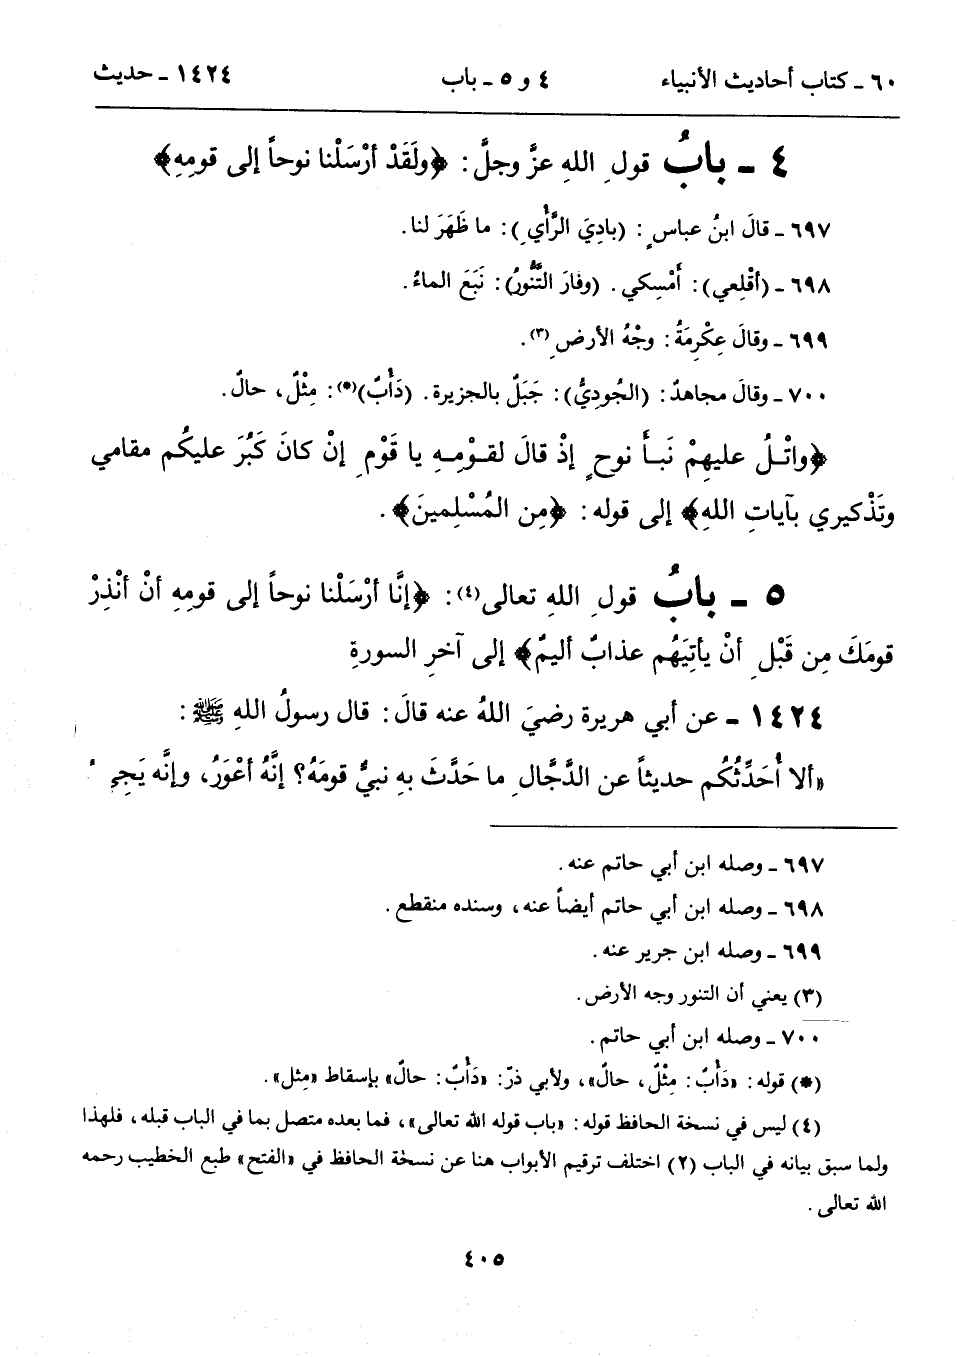 ٦٠ ـ كتاب أحاديث الأنبياء ٤ و ٥ ـ باب ١٤٢٤ ـ حديث
٤ ـ بابُ قولِ اللهِ عزَّ وجلَّ: ﴿ولَقَدْ أرْسَلْنا نوحاً إلى قومِهِ﴾
٦٩٧ ـ قالَ ابنُ عباسٍ: (بادِيَ الرَّأْيِ): ما ظَهَرَ لنا.
٦٩٨ ـ (أقْلِعي): أَمْسِكي. (وفارَ التَّنُّورُ): نَبَعَ الماءُ.
٦٩٩ ـ وقالَ عِكْرِمَةُ: وجْهُ الأرضِ(٣).
٧٠٠ ـ وقالَ مجاهدٌ: (الجُودِيُّ): جَبَلٌ بالجزيرة. (دَأْبٌ)(*): مِثْلُ، حالٌ.
﴿واتْلُ عليهِمْ نَبأَ نوحٍ إذْ قالَ لقوْمِهِ يا قَوْمِ إنْ كانَ كَبُرَ عليكُم مقامي
وتَذْكيري بآياتِ اللهِ﴾ إلى قوله: ﴿مِن المُسْلِمينَ﴾.
٥ ـ بابُ قولِ اللهِ تعالى(٤): ﴿إنَّا أرْسَلْنا نوحاً إلى قومِهِ أنْ أنْذِرْ
قومَكَ مِن قَبْلِ أنْ يأتِيَهُم عذابٌ أليمٌ﴾ إلى آخرِ السورةِ
١٤٢٤ ـ عن أبي هريرة رضيَ اللهُ عنه قالَ: قال رسولُ اللهِ ﷺ:
«ألا أُحَدِّثُكُم حديثاً عن الدَّجَّالِ ما حَدَّثَ بهِ نبيٌّ قومَهُ؟ إنَّهُ أعْوَرُ، وإنَّه يَجِيءُ
٦٩٧ ـ وصله ابن أبي حاتم عنه.
٦٩٨ ـ وصله ابن أبي حاتم أيضاً عنه، وسنده منقطع.
٦٩٩ ـ وصله ابن جرير عنه.
(٣) يعني أن التنور وجه الأرض.
٧٠٠ ـ وصله ابن أبي حاتم.
(*) قوله: «دَأْبٌ: مِثْلُ، حالٌ»، ولأبي ذرّ: «دَأْبٌ: حالٌ» بإسقاط «مِثل».
(٤) ليس في نسخة الحافظ قوله: «باب قوله الله تعالى»، فما بعده متصل بما في الباب قبله، فلهذا
ولما سبق بيانه في الباب (٢) اختلف ترقيم الأبواب هنا عن نسخة الحافظ في «الفتح» طبع الخطيب رحمه
الله تعالى.
٤٠٥